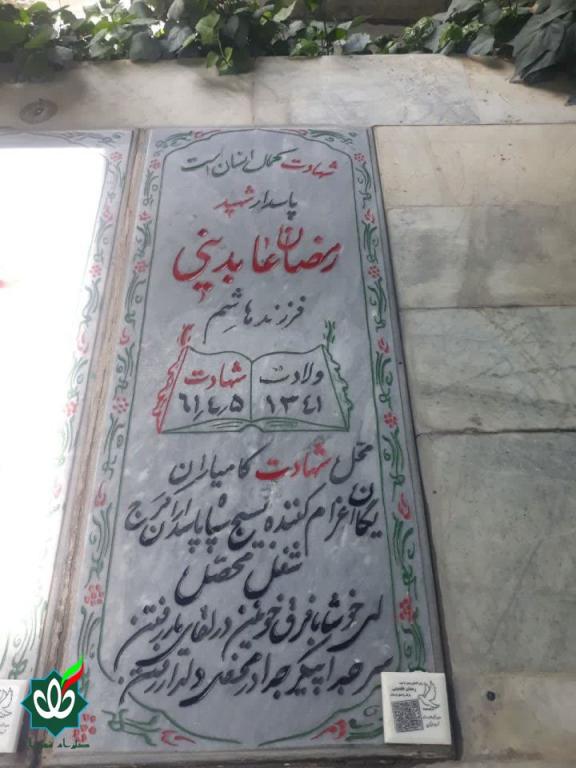 شهادت کمال انسان است
پاسدار شهید
رمضان عابدینی
فرزند هاشم
ولادت
۱۳۴۱
شهادت
۶۱٫۴٫۵
محل شهادت کامیاران
یگان اعزام کننده بسیج سپاه پاسداران کرج
شغل محصل
ای خوشا با فرق خونین در لقای یار رفتن
سر جدا پیکر جدا در محفل دلدار رفتن